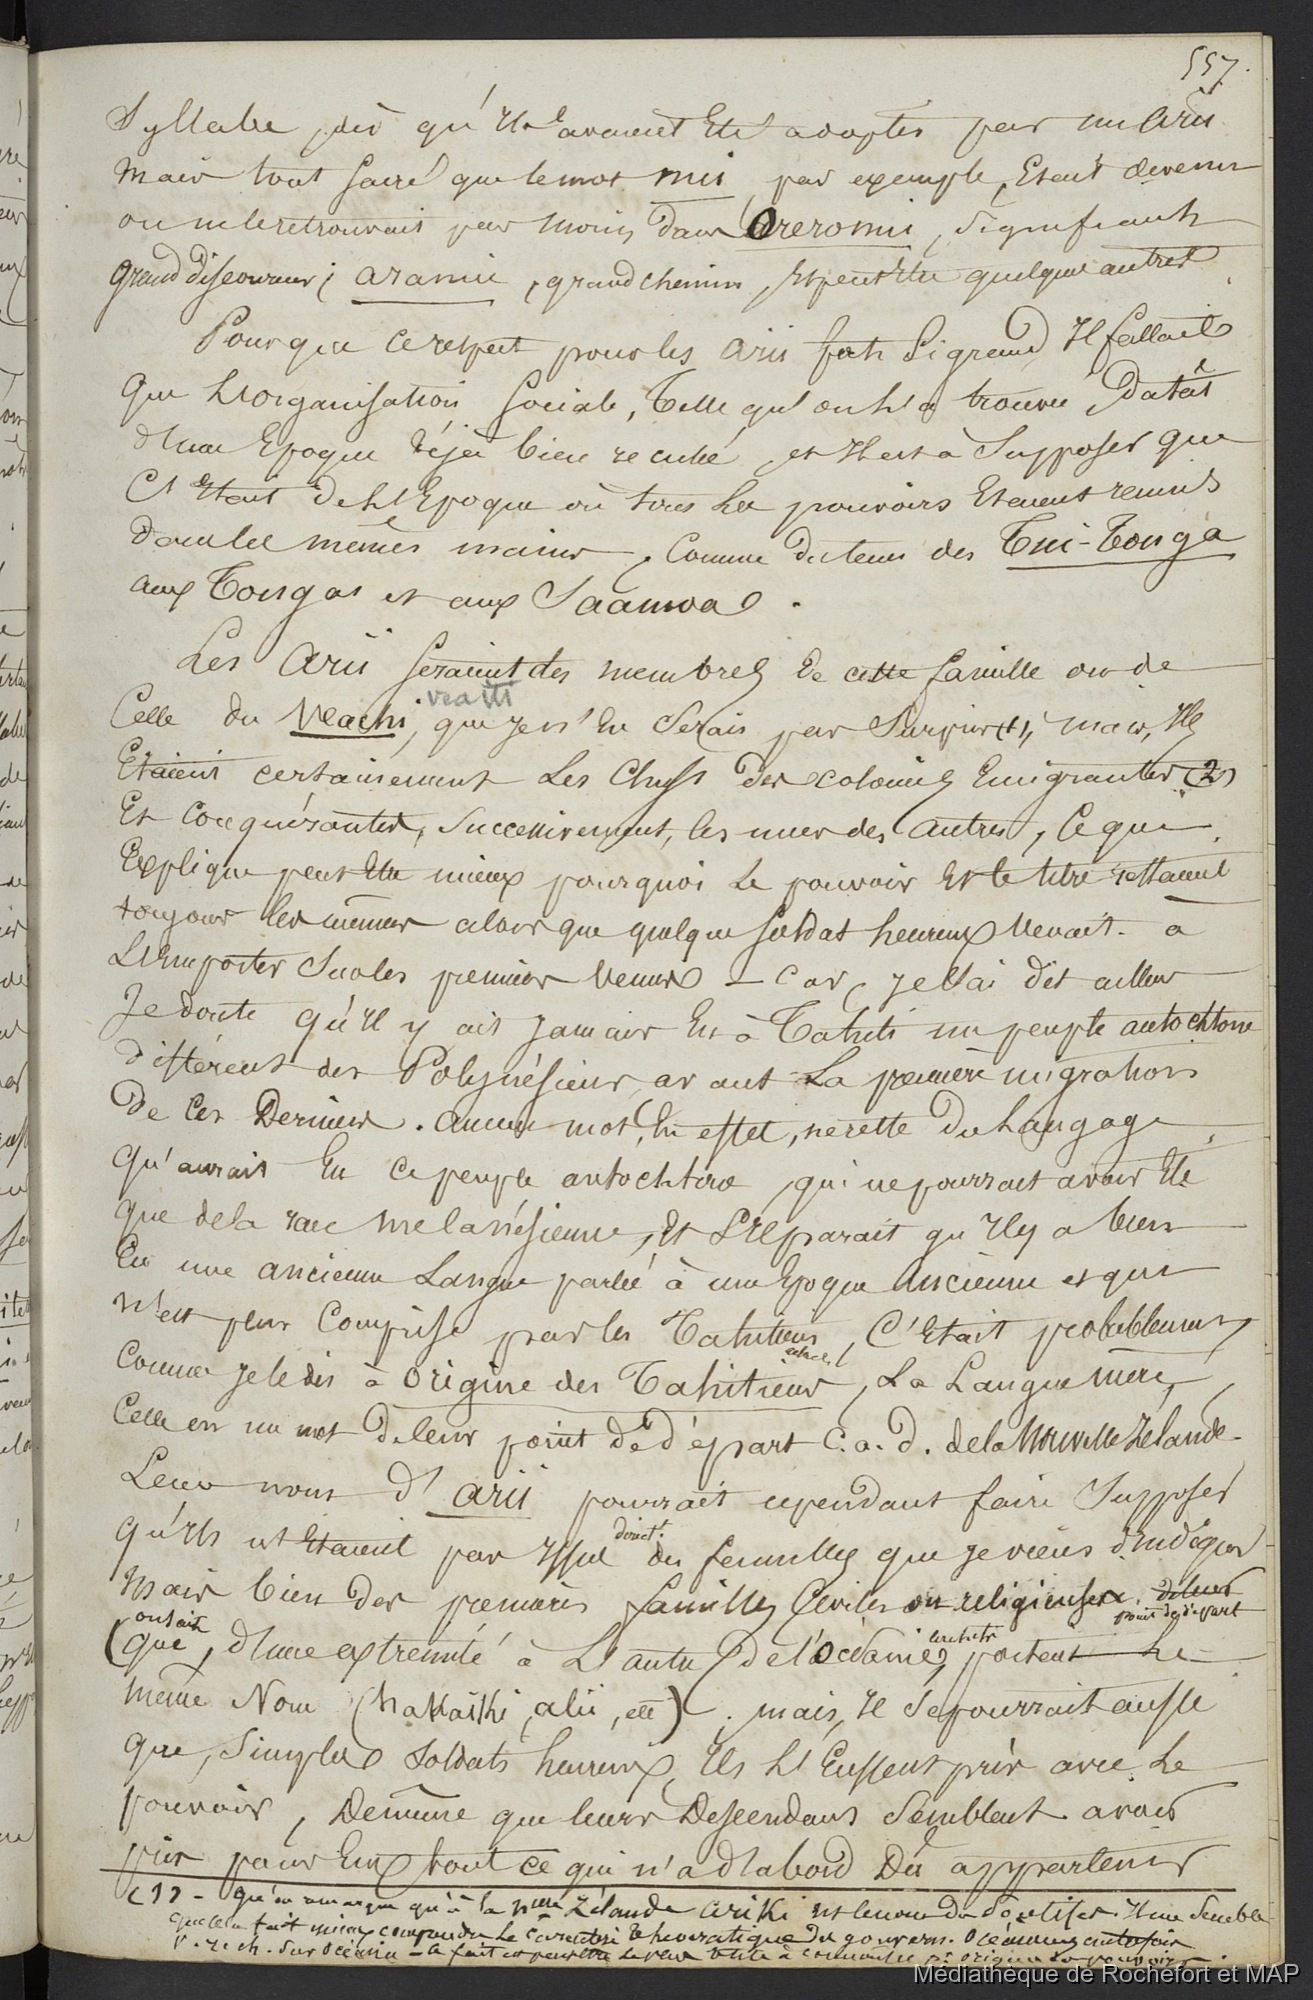 557.
Syllabe, dès qu'ils avaient été adoptés par un Arii
mais tout sacré que le mot mii, par exemple, était devenu
on ne le retrouvait pas moins dans Oreromii, signifiant
grand discoureur; aramii, grand chemin, et peut être quelques autres.
Pour que ce respect pour les arii fut si grand, il fallait
que l'organisation sociale, telle qu'on l'a trouvée, datât
d'une époque déjà bien reculée, et il est à supposer que
c'était de l'Epoque où tous les pouvoirs étaient réunis
dans les mêmes mains, comme du tems des Tui-Tonga
aux Tongas et aux Saamoa.
Les Arii seraient des membres de cette famille ou de
veatti
celle du Veachi, que je n'en serais pas surpris (1); mais, ils
étaient certainement les chefs des colonies émigrantes (2)
et conquérantes, successivement, les unes des autres, ce qui
explique peut être mieux pourquoi le pouvoir et le titre restaient
toujours les mêmes alors que quelque soldat heureux venait à
l'emporter sur les premiers venus - car, je l'ai dit ailleurs
Je doute qu'il y ait jamais eu à Tahiti un peuple autochtone
différent des Polynésiens, avant la première migration
de ces derniers. Aucun mot, en effet, ne reste du langage
qu'aurait eu ce peuple autochtone, qui ne pourrait avoir été
que de la race mélanésienne, et s'il parait qu'il y a bien
eu une ancienne langue parlée à une époque ancienne et qui
n'est plus comprise par les Tahitiens, c'était probablement
comme je le dis à origine des Tahitiens, la langue mère,
celle en un mot de leur point de départ c.a.d. de la Nouvelle Zélande.
Leur nom d'arii pourrait cependant faire supposer
direct.t
qu'ils n'étaient pas issus des familles que je viens d'indiquer
mais bien des premières familles civiles ou religieuses, de leur
point de départ
on sait
(que, d'une extrémité à l'autre de l'Océanie, portent le
même Nom (hakaïki, alii, etc). mais, il se pourrait aussi
que, simples soldats heureux, ils l'eussent pris avec le
pouvoir, de même que leurs descendans semblent avoir
pris pour eux tout ce qui n'a d'abord dû appartenir
(1) - qu'on remarque qu'à la N.elle Zélande ariki est le nom du Pontife. Il me semble
que cela fait mieux comprendre le caractère théocratique du gouvern. Océanien autrefois
V. rech. sur Océanie - le fait est peut être le seul utile à connaître p.r origine du pouvoir.